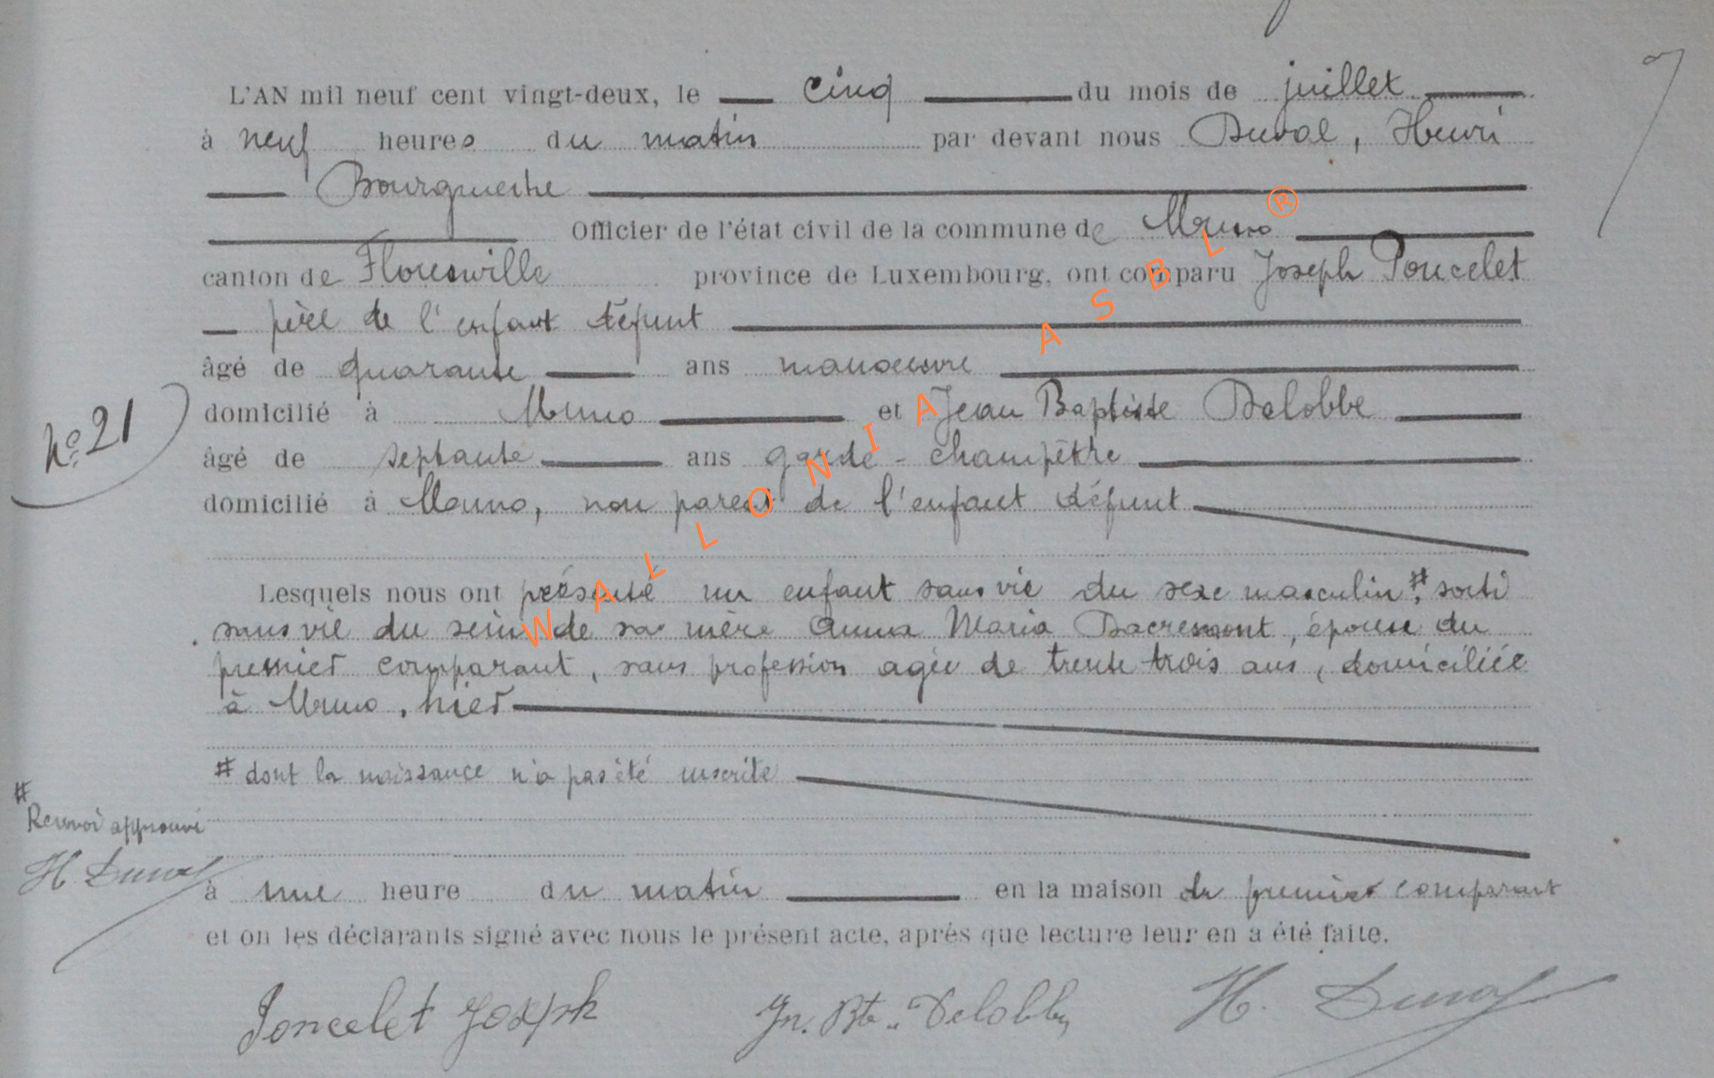 L'AN mil neuf cent vingt-deux, le cinq du mois de juillet
à neuf heures du matin par devant nous Duval, Henri
Bourgmestre
Officier de l'état civil de la commune de Muno
canton de Florenville province de Luxembourg, ont comparu Joseph Poncelet
père de l'enfant défunt
âgé de quarante ans manoeuvre
domicilié à Muno et Jean Baptiste Delobbe
âgé de septante ans garde-champêtre
domicilié à Muno, non parent de l'enfant défunt
N° 21
Lesquels nous ont présenté un enfant sans vie du sexe masculin #, sorti
sans vie du sein de sa mère Anna Maria Dacremont, épouse du
premier comparant, sans profession agée de trente trois ans, domiciliée
à Muno, hier
# dont la naissance n'a pas été inscrite
#
Renvoi approuvé
H. Duval
à une heure du matin en la maison du premier comparant
et on les déclarants signé avec nous le présent acte, après que lecture leur en a été faite.
Poncelet Joseph Jn. Bte. Delobbe H. Duval
WALLONIA ASBL ®